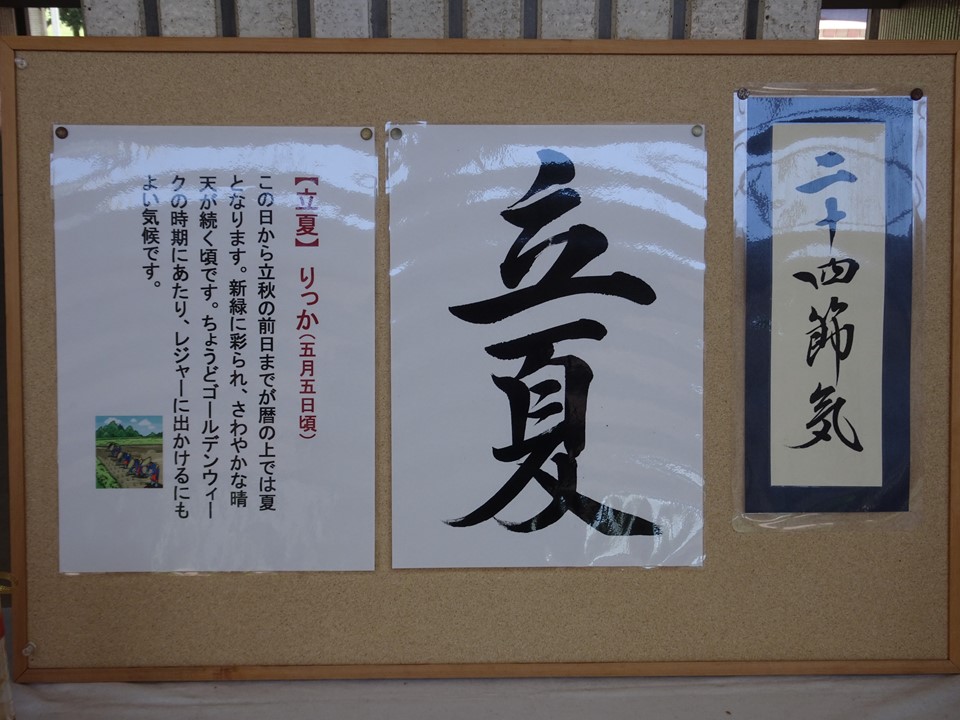 二十四節気
立夏
【立夏】 りっか（五月五日頃）
この日から立秋の前日までが暦の上では夏
となります。新緑に彩られ、さわやかな晴
天が続く頃です。ちょうどゴールデンウィー
クの時期にあたり、レジャーに出かけるにも
よい気候です。